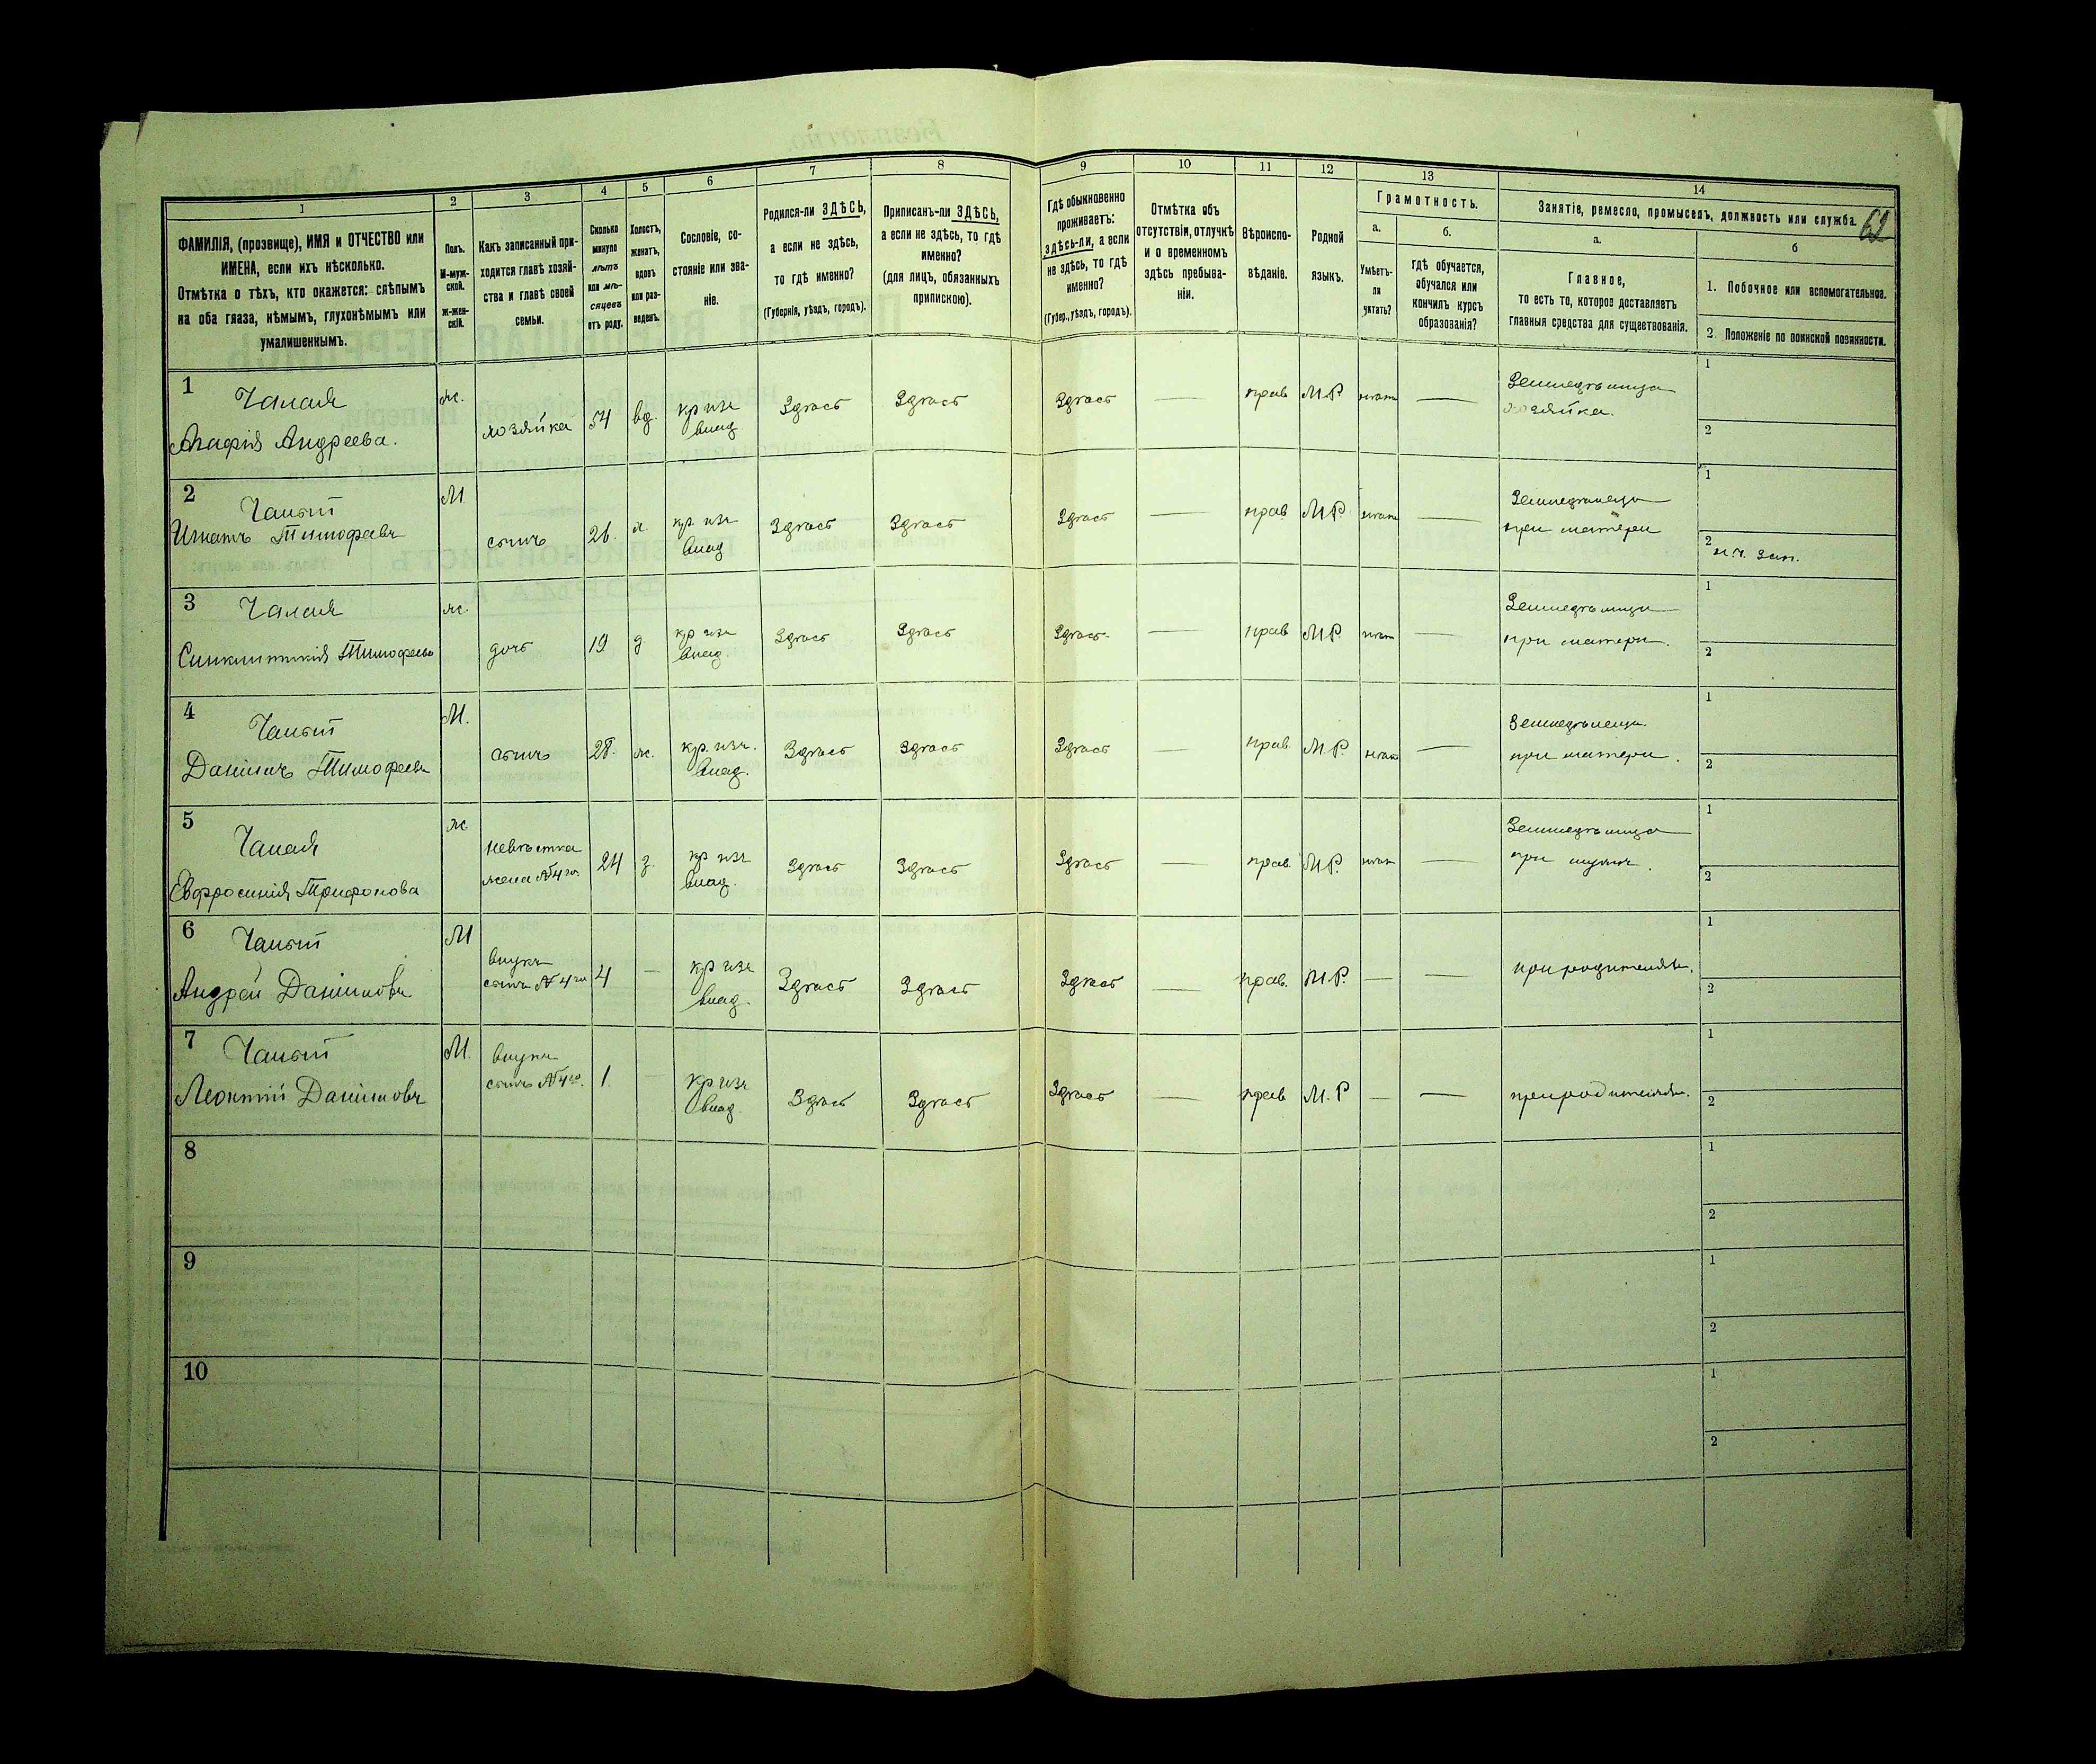 62
1 2 3 4 5 6 7 8 9 10 11 12 13 14
ФАМИЛІЯ, (прозвище), ИМЯ и ОТЧЕСТВО или
ИМЕНА, если ихъ нѣсколько.
Отмѣтка о тѣхъ, кто окажется: слѣпымъ
на оба глаза, нѣмымъ, глухонѣмымъ или
умалишеннымъ.
Полъ.
М-муж-
ской.
ж-жен-
скій.
Какъ записанный при-
ходится главѣ хозяй-
ства и главѣ своей
семьи.
Сколько
минуло
лѣтъ
или мѣ-
сяцевъ
отъ роду.
Холостъ,
женатъ,
вдовъ
или раз-
веденъ.
Сословіе, со-
стояніе или зва-
ніе.
Родился-ли ЗДѢСЬ,
а если не здѣсь,
то гдѣ именно?
(Губернія, уѣздъ, городъ).
Приписанъ-ли ЗДѢСЬ,
а если не здѣсь, то гдѣ
именно?
(для лицъ, обязанныхъ
припискою).
Гдѣ обыкновенно
проживаетъ:
здѣсь-ли, а если
не здѣсь, то гдѣ
именно?
(Губер., уѣздъ, городъ).
Отмѣтка объ
отсутствіи, отлучкѣ
и о временномъ
здѣсь пребыва-
ніи.
Вѣроиспо-
вѣданіе.
Родной
языкъ.
Грамотность.
а.
Умѣетъ-
ли
читать?
б.
гдѣ обучается,
обучался или
кончилъ курсъ
образованія?
Занятіе, ремесло, промыселъ, должность или служба.
а.
Главное,
то есть то, которое доставляетъ
главныя средства для существованія.
б
1. Побочное или вспомогательное.
2. Положеніе по воинской повинности.
1 Чалая
Агафія Андреева.
ж. хозяйка 54 вд. кр изъ
влад. Здѣсь Здѣсь Здѣсь — прав М.Р. нѣтъ — Земледѣлица
хозяйка.
1
2
2 Чалый
Игнатъ Тимофеевъ
М сынъ 26. кр. изъ
влад Здѣсь Здѣсь Здѣсь — прав М.Р. нѣтъ — Земледѣлецъ
при матери
1
2
3 Чалая
Синклитикія Тимофеева
ж. дочь 19 д кр изъ
влад. Здѣсь Здѣсь Здѣсь — прав М.Р. нѣтъ — Земледѣлица
при матери.
1
2
4 Чалый
Даніилъ Тимофеевъ
М. сынъ 28. ж. кр. изъ
влад. Здѣсь Здѣсь Здѣсь — прав. М.Р. нѣтъ — Земледѣлецъ
при матери.
1
2
5 Чалая
Евфросинія Трифонова
ж невѣстка
жена №4го. 24 з. кр изъ
влад. Здѣсь Здѣсь Здѣсь — прав. М.Р. нѣтъ — Земледѣлица
при мужѣ.
1
2
6 Чалый
Андрей Даніиловъ
М внукъ
сынъ №4го 4 — кр изъ
влад. Здѣсь Здѣсь Здѣсь — прав. М.Р. — — при родителяхъ.
1
2
7 Чалый
Леонтій Даніиловъ
М. внукъ
сынъ №4го. 1. — кр изъ
влад. Здѣсь Здѣсь Здѣсь — прав М.Р — — при родителяхъ.
1
2
8
1
2
9
1
2
10
1
2